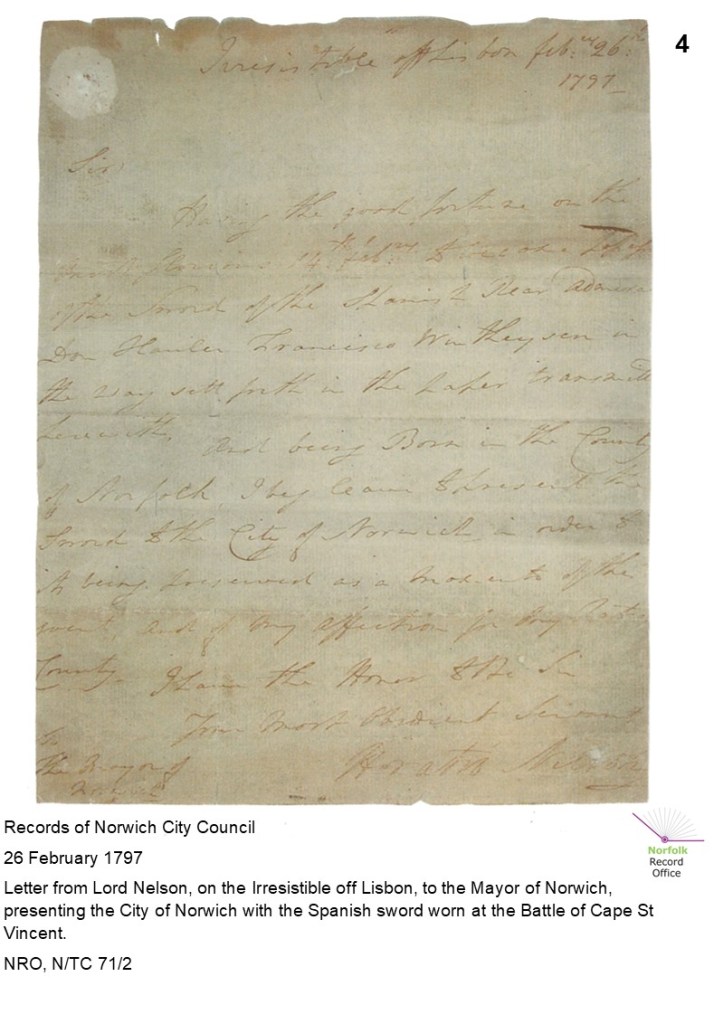 4
Irresistible off Lisbon feb:ry 26:th
1797
Sir,
Having the good fortune on the
most Glorious 14th feb:ry to become
of the Sword of the Spanish Rear Admiral
Don Francisco Winthuysen in
the way sett forth in the paper transmitted
herewith,
and being Born in the County
of Norfolk, I beg leave to present the
Sword to the City of Norwich in order to
its being preserved as a memento of the
event, and of my affection for my Native
County. I have the Honor to Be Sir
Your most Obedient Servant
Horatio Nelson
To
The Mayor of
Norwich
Records of Norwich City Council
26 February 1797
Letter from Lord Nelson, on the Irresistible off Lisbon, to the Mayor of Norwich,
presenting the City of Norwich with the Spanish sword worn at the Battle of Cape St
Vincent.
NRO, N/TC 71/2
Norfolk
Record
Office